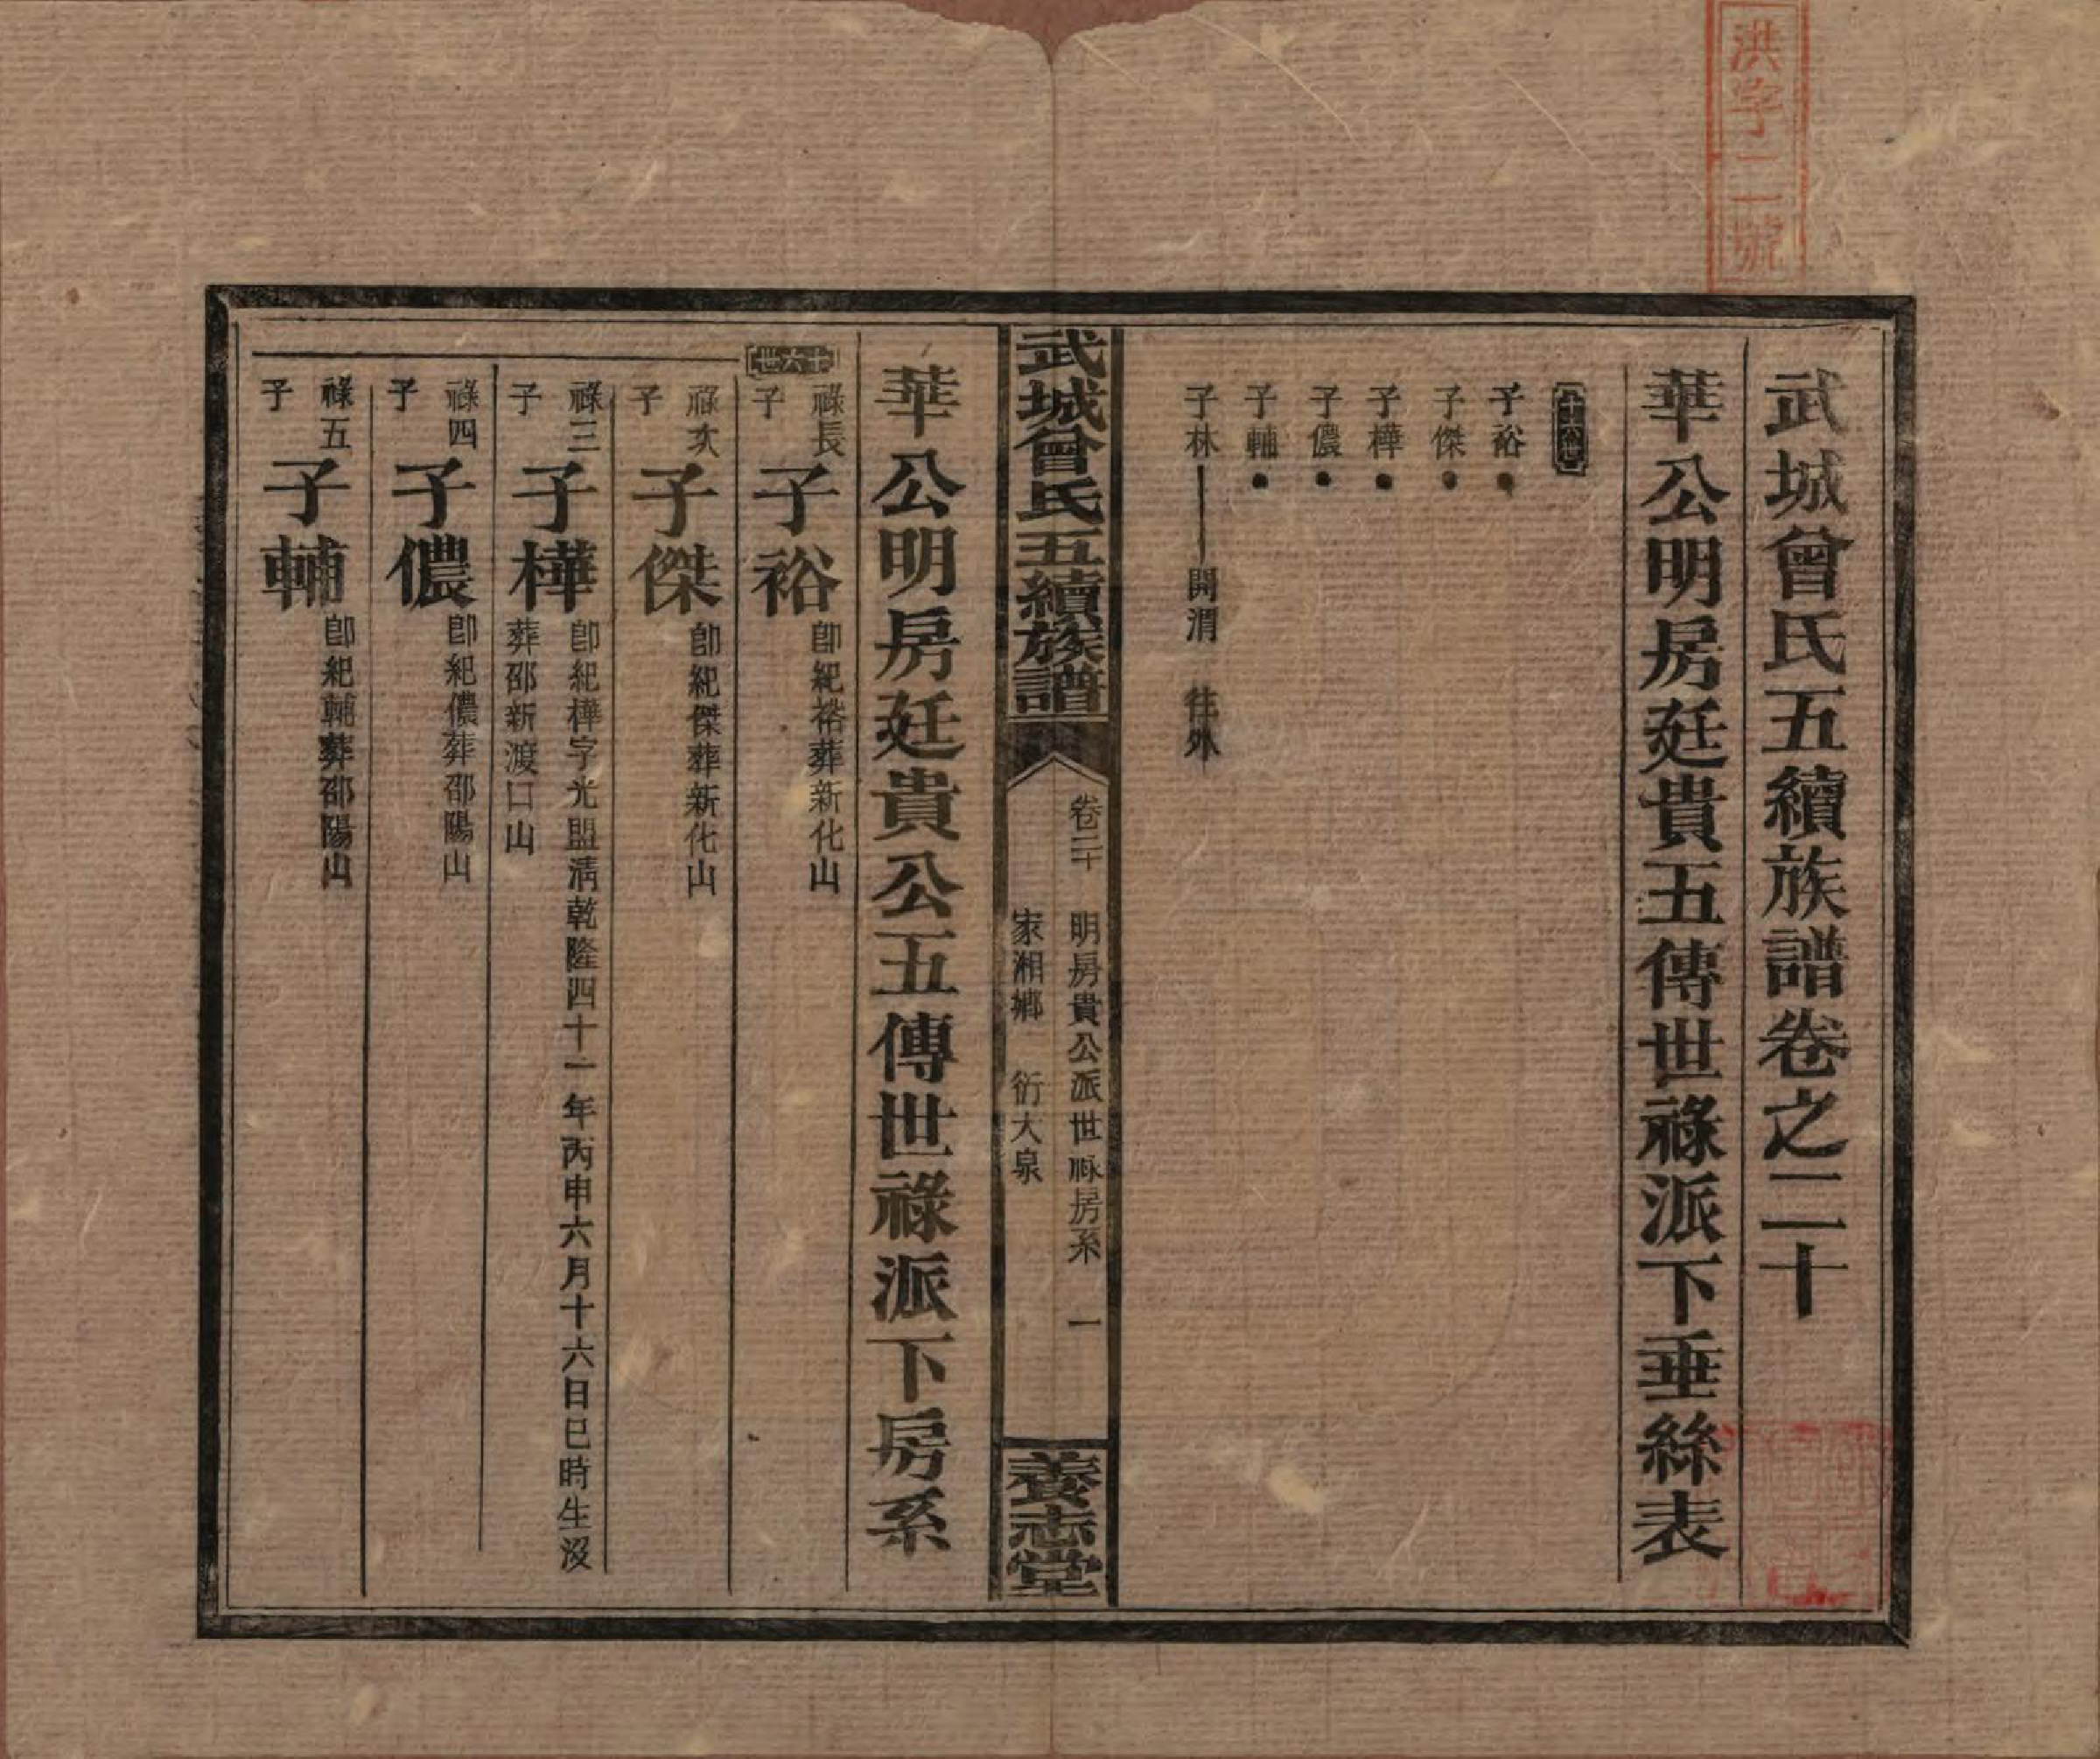 洪字二號
武城曾氏五續族譜卷之二十
華公明房廷貴五傳世祿派下垂絲表
十六世
子裕
子傑
子樺
子儂
子輔
子林 開渭 往外
武城曾氏五續族譜 卷二十 明房貴公派世祿房系 一
家湘鄉 衍大泉
養志堂
華公明房廷貴公五傳世祿派下房系
十六世
祿長子 子裕 卽紀裕葬新化山
祿次子 子傑 卽紀傑葬新化山
祿三子 子樺 卽紀樺字光盟淸乾隆四十一年丙申六月十六日巳時生沒
葬邵新渡口山
祿四子 子儂 卽紀儂葬邵陽山
祿五子 子輔 卽紀輔葬邵陽山